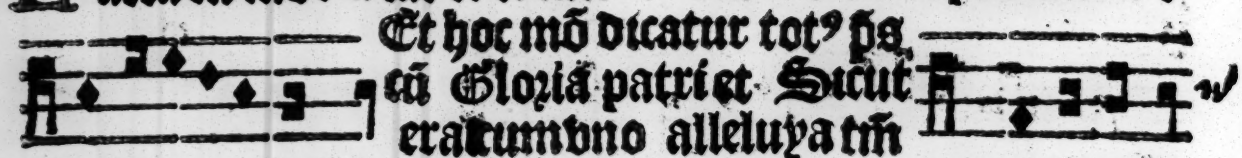 Et hoc mō dicatur totꝰ p̄s.
cū Gloria patri et Sicut
erat cum vno alleluya tm̄